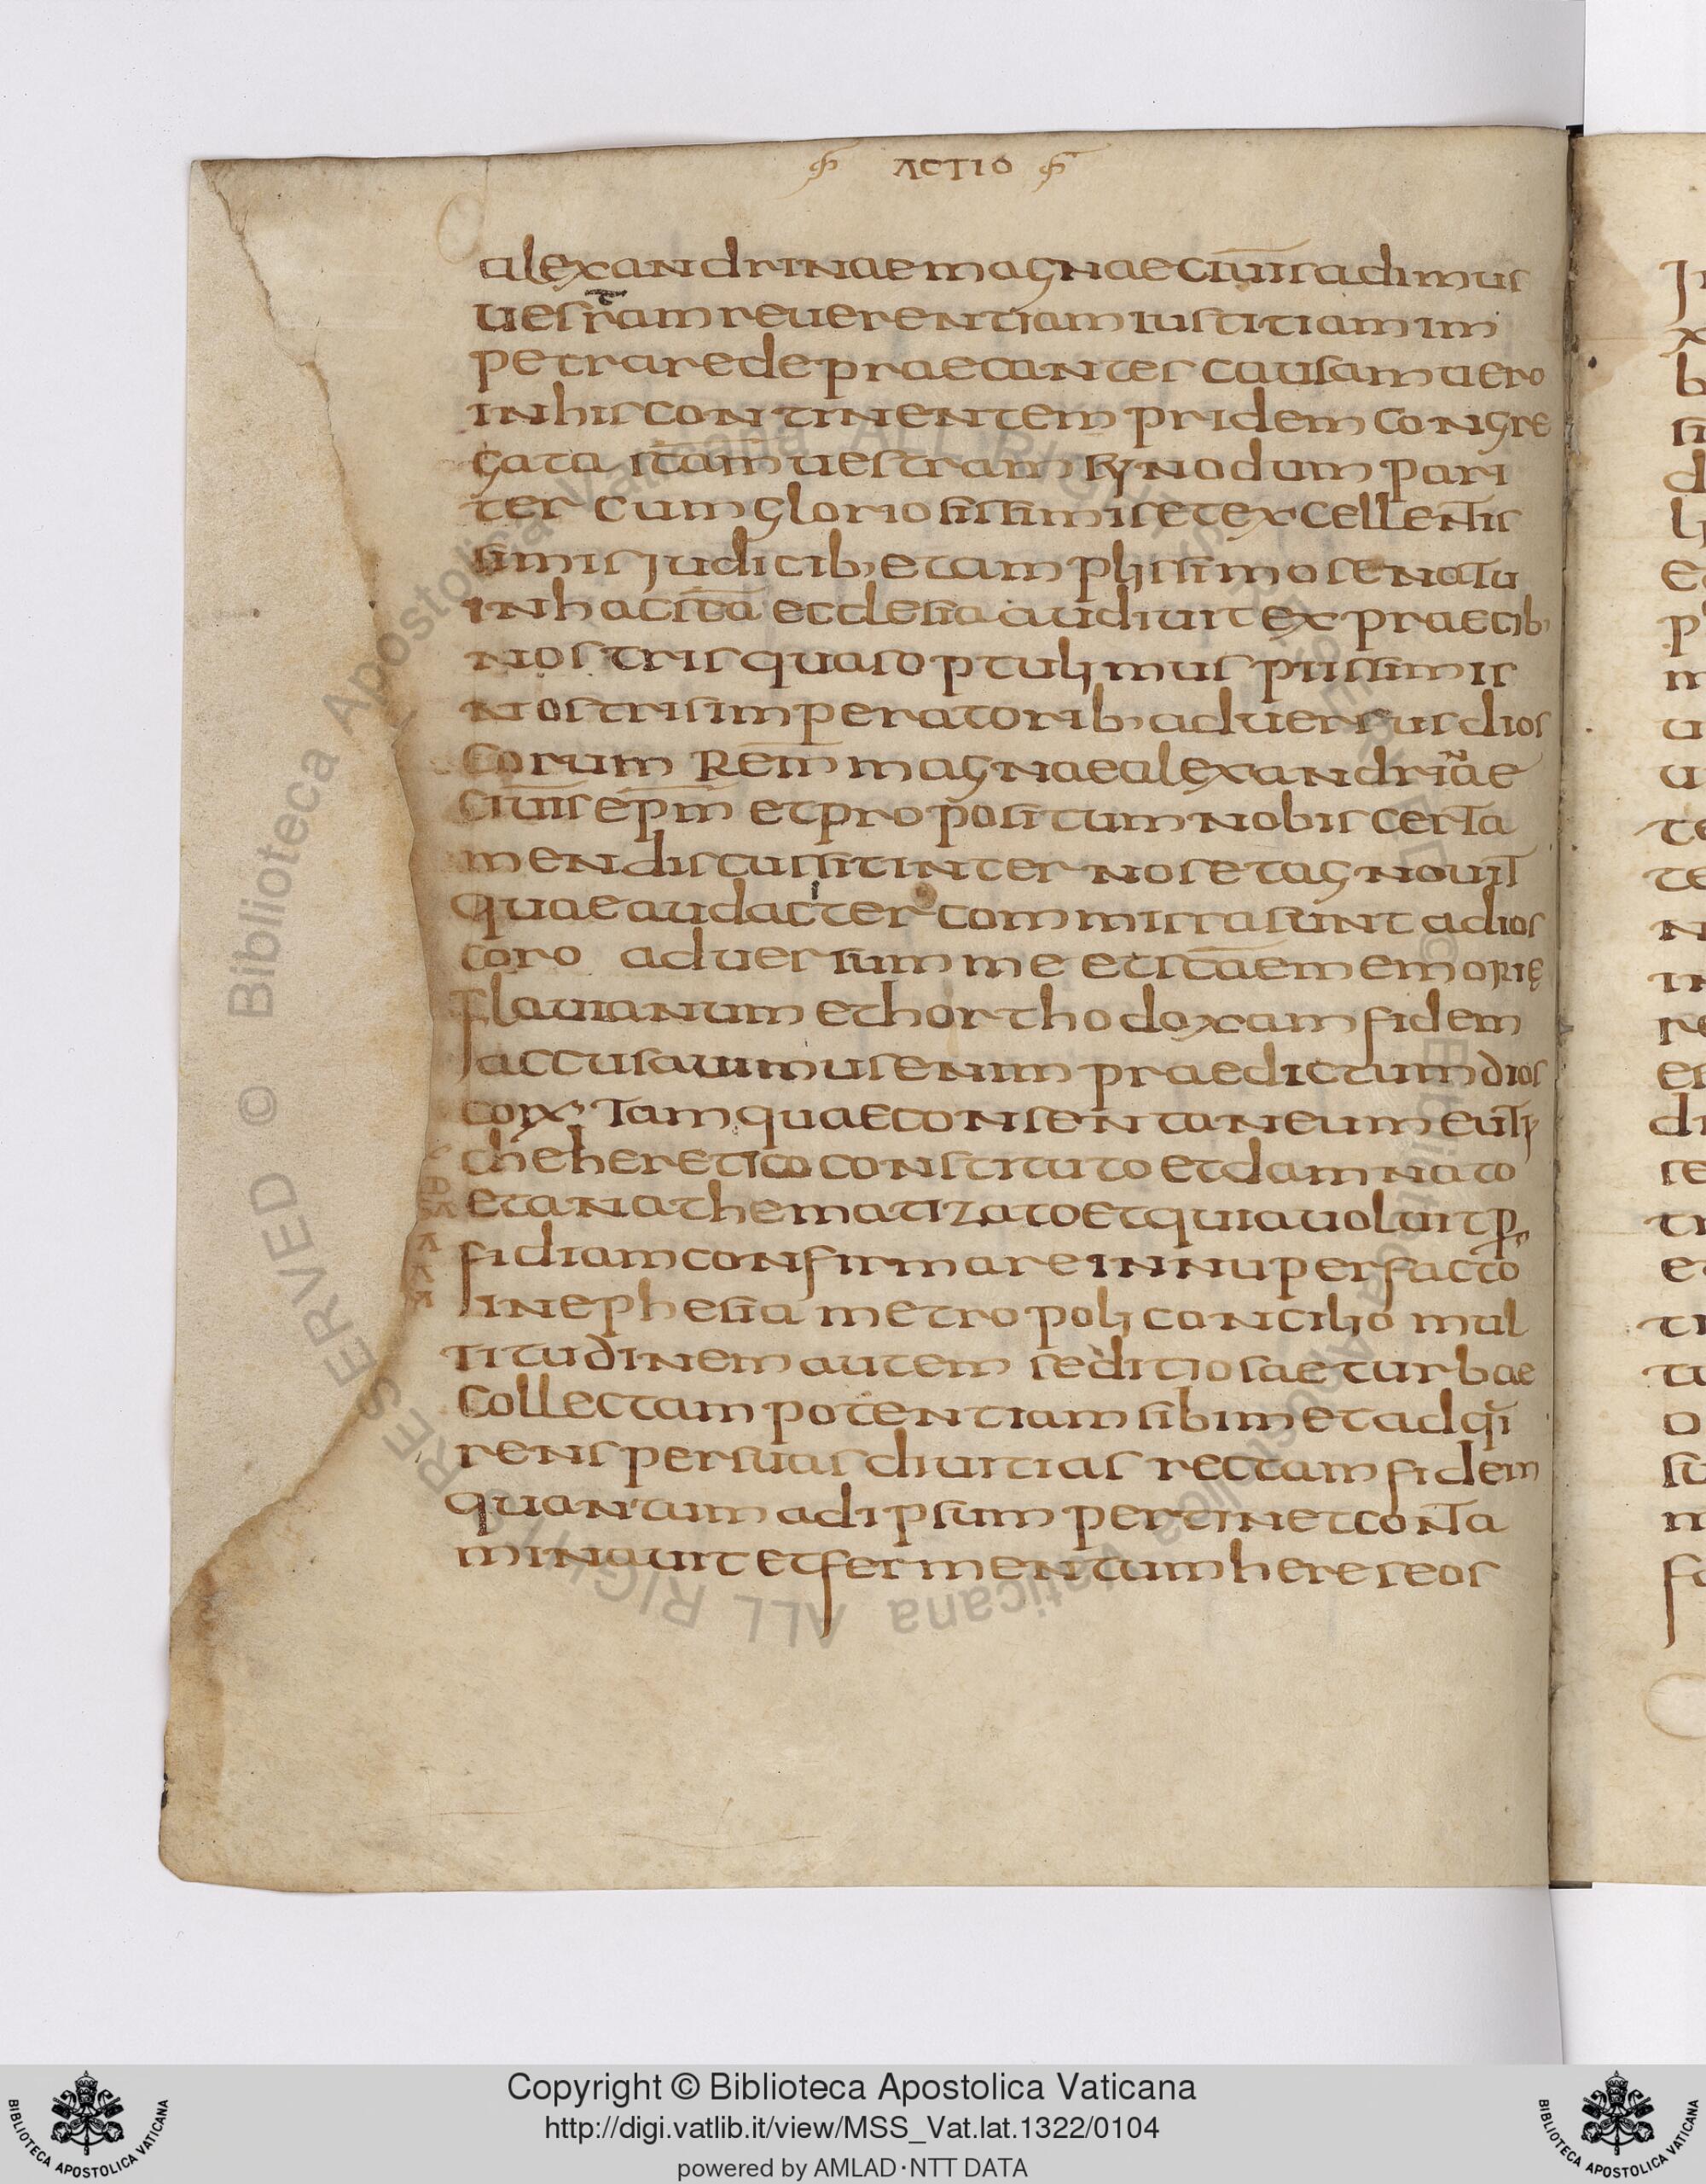 ACTIO
alexandrinae magnae ciuīs adimus
uestram reuerentiam iustitiam im
petrare depraecantes causam uero
in his continentem pridem congre
gata s̄c̄am uestram synodum pari
ter cum gloriosissimis et excellentis
simis judicib, et amplissimo senatu
in hac s̄c̄a ecclesia audiuit ex praecib,
nostris quas optulimus piissimis
nostris imperatorib, aduersus dios
corum Rem̄ magnae alexandrinae
ciuīs ep̄m et propositum nobis certa
men discussit inter nos et agnouit
quae audaciter commissa sunt a dios
coro aduersum me et s̄c̄ae memorię
flauianum et horthodoxam fidem
accusauimus enim praedictum dios
corx, tam quae consentaneum euty
che heretico constituto et damnato
et anathematizato et quia uoluit p̲
fidiam confirmare in nuper facto
in ephesia metropoli concilio mul
titudinem autem seditiosae turbae
collectam potentiam sibimet adqi
rens per suas diuitias rectam fidem
quantum ad ipsum pertinet conta
minauit et fermentum hereseos
Copyright © Biblioteca Apostolica Vaticana
http://digi.vatlib.it/view/MSS_Vat.lat.1322/0104
powered by AMLAD·NTT DATA